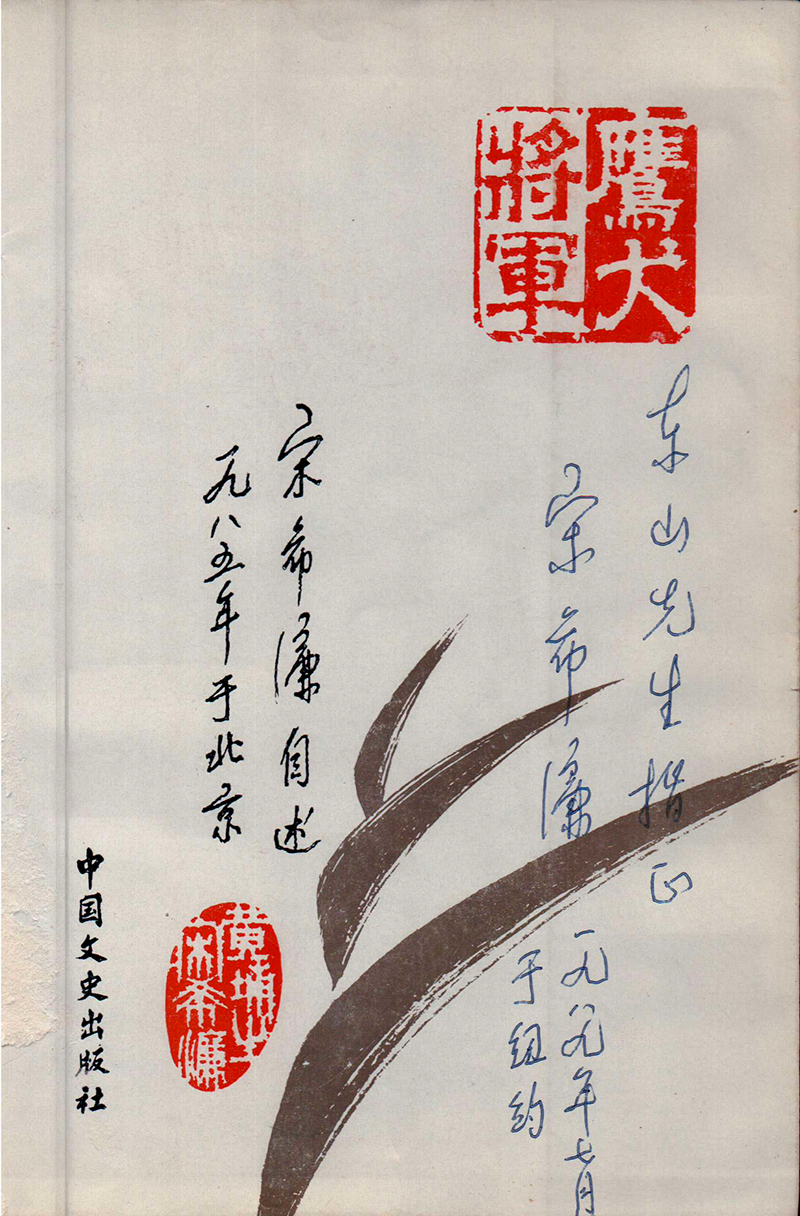 鷹犬
將軍
东山先生指正
宋希濂
一九八九年七月
于纽约
宋希濂自述
一九八五年于北京
黄埔生
宋希濂
中国文史出版社